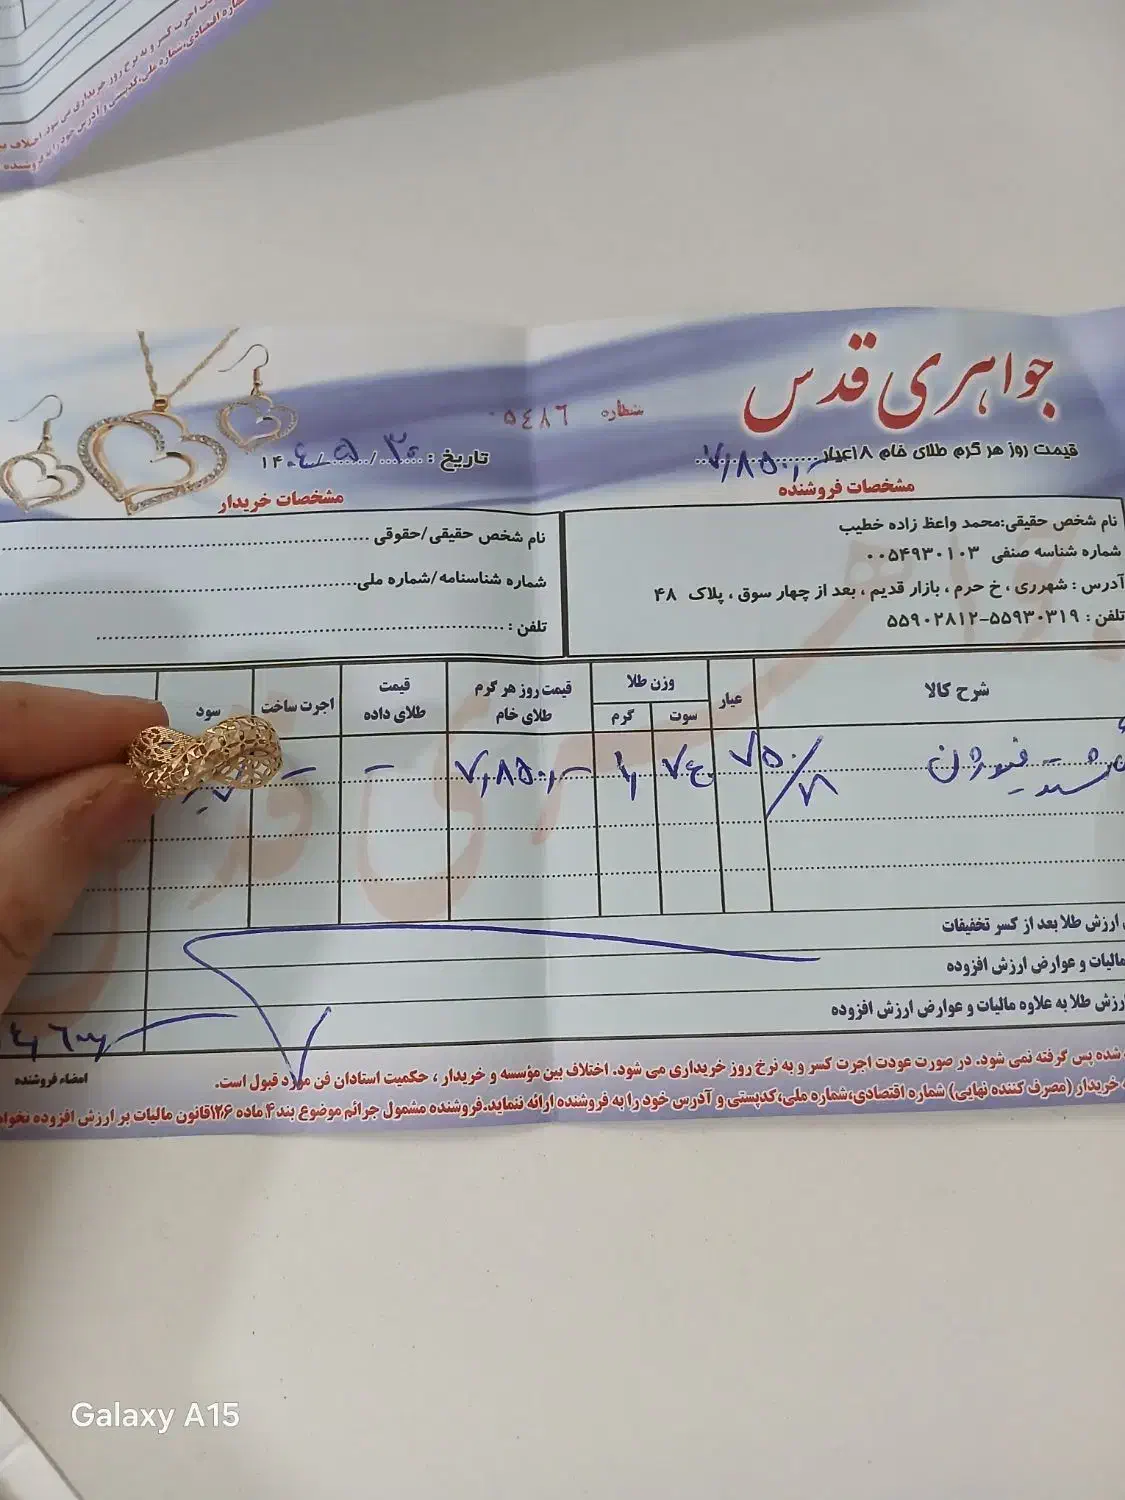 جواهری قدس
شماره ۰۵۴۸۶
قیمت روز هر گرم طلای خام ۱۸عیار ۷,۸۵۰,-
تاریخ : ۱۴۰۴/۵/۳۰
مشخصات فروشنده
مشخصات خریدار
نام شخص حقیقی:محمد واعظ زاده خطیب
شماره شناسه صنفی ۰۰۵۴۹۳۰۱۰۳
آدرس : شهرری ، خ حرم ، بازار قدیم ، بعد از چهار سوق ، پلاک ۴۸
تلفن : ۵۵۹۳۰۳۱۹-۵۵۹۰۲۸۱۲
نام شخص حقیقی/حقوقی
شماره شناسنامه/شماره ملی
تلفن :
شرح کالا
عیار
وزن طلا
سوت
گرم
قیمت روز هر گرم طلای خام
قیمت طلای داده
اجرت ساخت
سود
۷۵۰
۷,۸۵۰,-
ارزش طلا بعد از کسر تخفیفات
مالیات و عوارض ارزش افزوده
ارزش طلا به علاوه مالیات و عوارض ارزش افزوده
امضاء فروشنده
شده پس گرفته نمی شود. در صورت عودت اجرت کسر و به نرخ روز خریداری می شود. اختلاف بین مؤسسه و خریدار ، حکمیت استادان فن مورد قبول است.
خریدار (مصرف کننده نهایی) شماره اقتصادی،شماره ملی،کدپستی و آدرس خود را به فروشنده ارائه ننماید.فروشنده مشمول جرائم موضوع بند ۴ ماده ۱۲۶قانون مالیات بر ارزش افزوده نخواهد
Galaxy A15